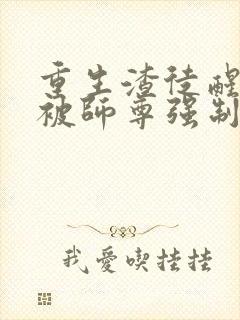 重生渣徒醒
被師尊强制
我愛喫挂挂